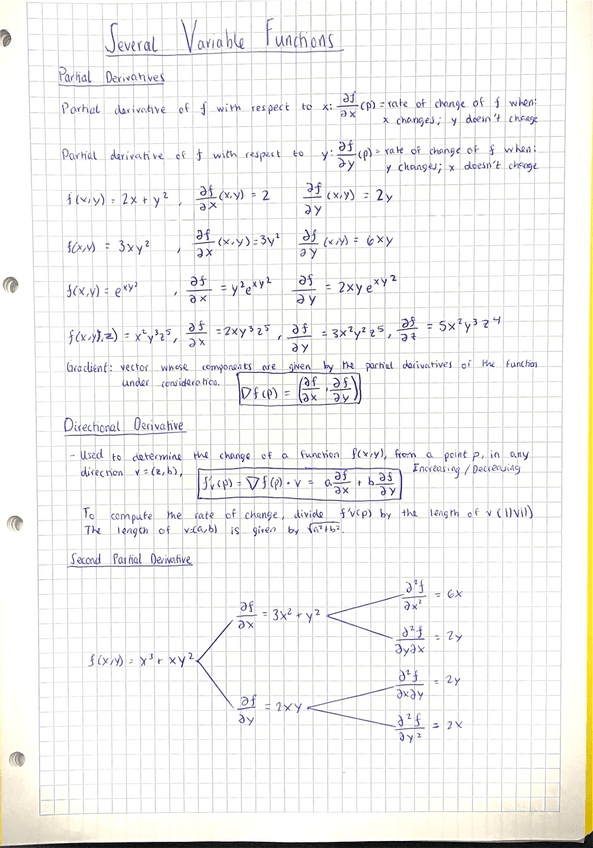 Several Variable Functions
Partial Derivatives
Partial derivative of f with respect to x: ∂f/∂x (p) = rate of change of f when:
x changes; y doesn't change
Partial derivative of f with respect to y: ∂f/∂y (p) = rate of change of f when:
y changes; x doesn't change
f(x,y) = 2x + y², ∂f/∂x (x,y) = 2 ∂f/∂y (x,y) = 2y
f(x,y) = 3xy², ∂f/∂x (x,y) = 3y² ∂f/∂y (x,y) = 6xy
f(x,y) = e^(xy²), ∂f/∂x = y²e^(xy²) ∂f/∂y = 2xye^(xy²)
f(x,y,z) = x²y³z⁵, ∂f/∂x = 2xy³z⁵, ∂f/∂y = 3x²y²z⁵, ∂f/∂z = 5x²y³z⁴
Gradient: vector whose components are given by the partial derivatives of the function
under consideration. ∇f(p) = (∂f/∂x, ∂f/∂y)
Directional Derivative
- Used to determine the change of a function f(x,y), from a point p, in any
direction v = (a,b), f'v(p) = ∇f(p) · v = a ∂f/∂x + b ∂f/∂y Increasing / Decreasing
To compute the rate of change, divide f'v(p) by the length of v (||v||)
The length of v=(a,b) is given by √(a²+b²).
Second Partial Derivative
∂²f/∂x² = 6x
∂f/∂x = 3x² + y²
∂²f/∂y∂x = 2y
f(x,y) = x³ + xy²
∂²f/∂x∂y = 2y
∂f/∂y = 2xy
∂²f/∂y² = 2x